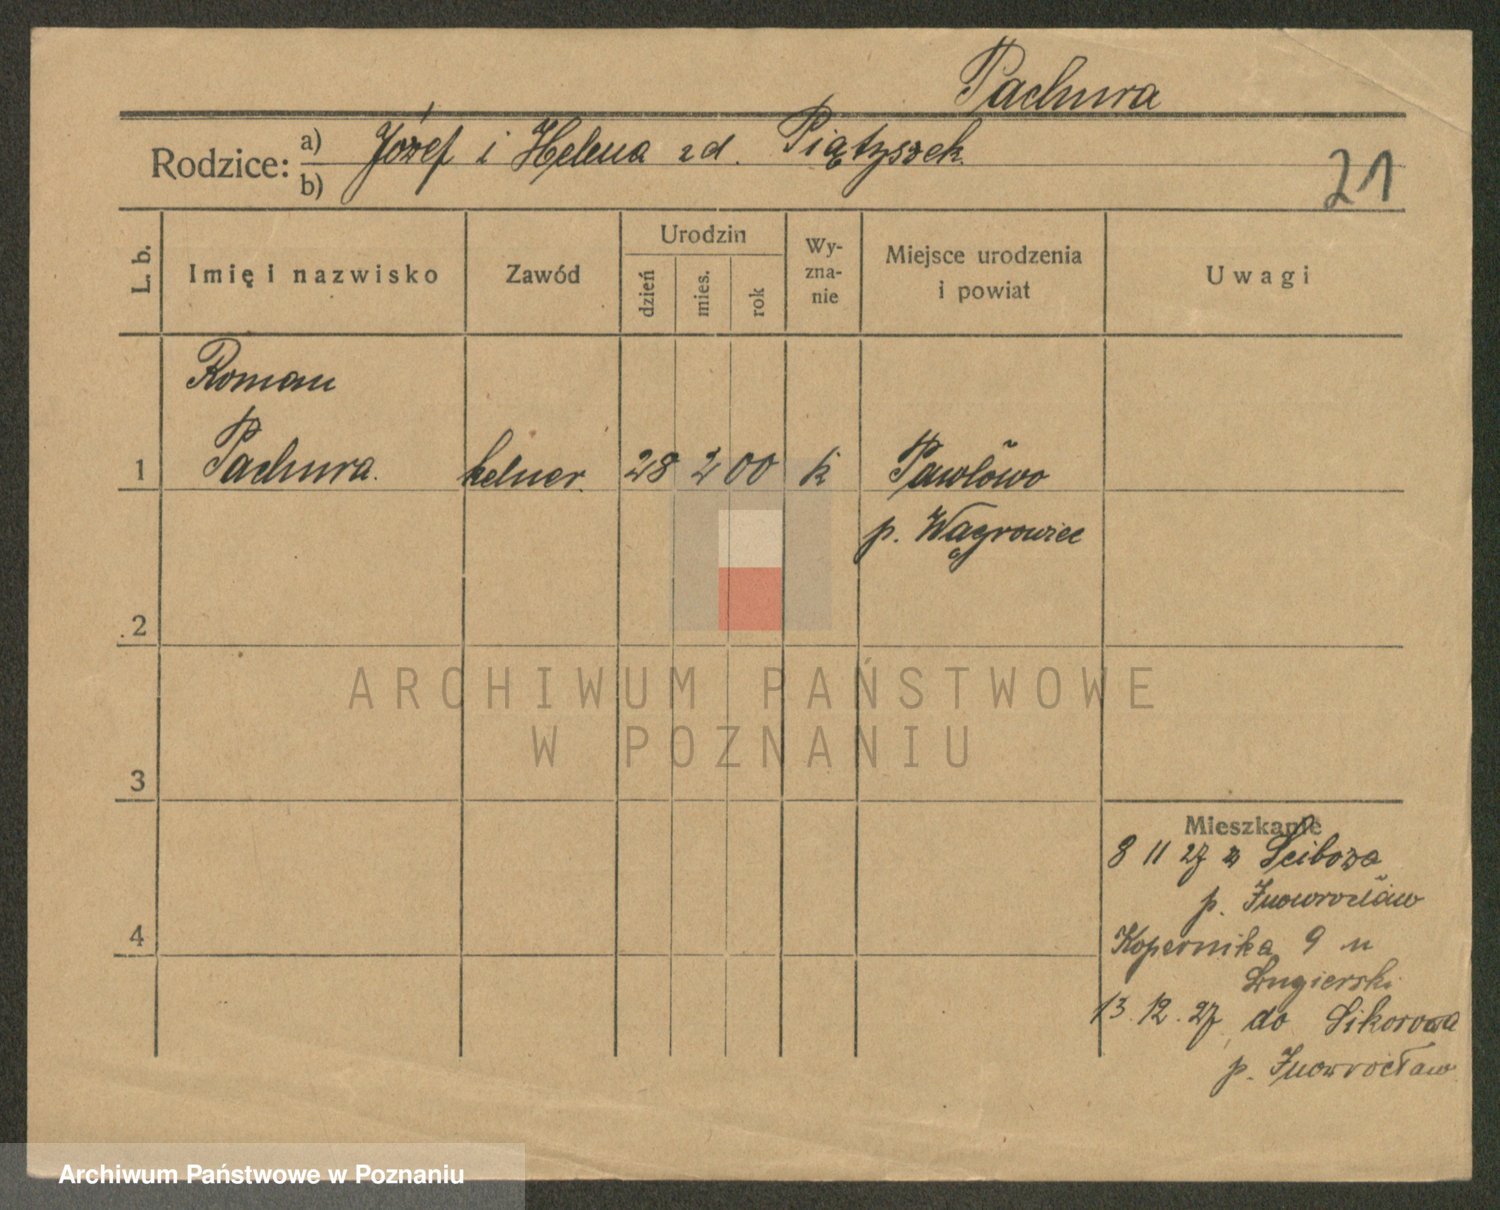 Pachura
Rodzice: a) Józef i Helena zd. Piątyszek
b)
21
L. b. Imię i nazwisko Zawód Urodzin dzień mies. rok Wyznanie Miejsce urodzenia i powiat Uwagi
Roman
1 Pachura. kelner. 28 2 00 k Pawłowo
p. Wągrowiec
2
ARCHIWUM PAŃSTWOWE
W POZNANIU
3
Mieszkanie
8 11 27 z Ściborza
p. Inowrocław
4
Kopernika 9 u
13. 12. 27 do Sikorowa
p. Inowrocław
Archiwum Państwowe w Poznaniu